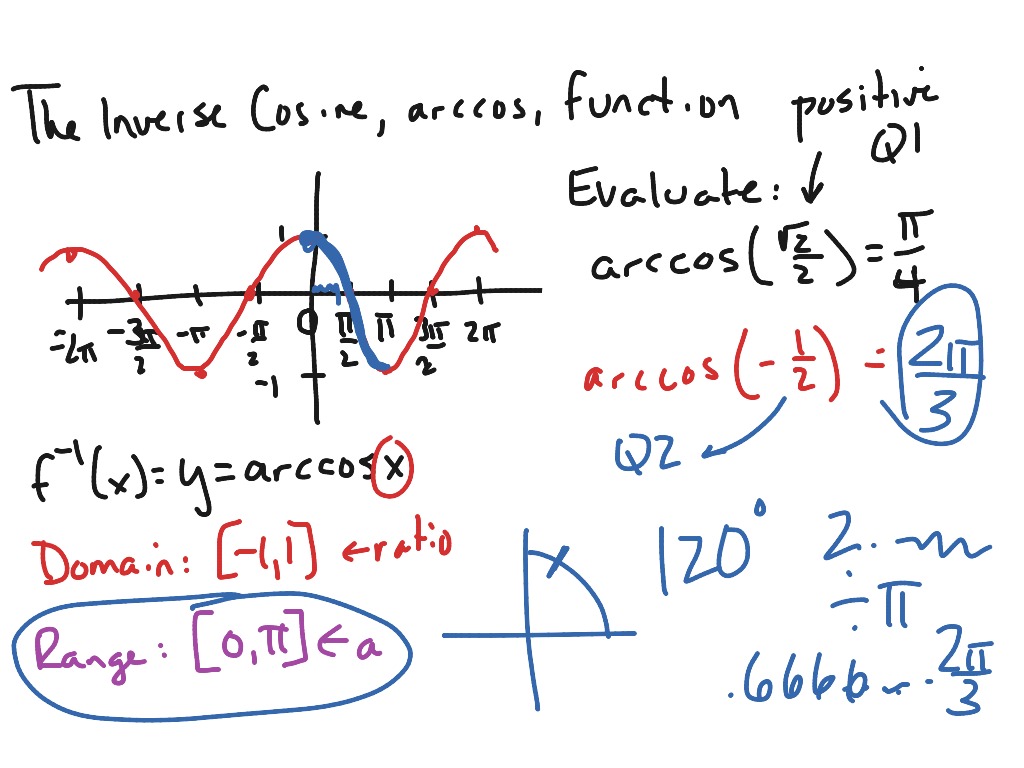 The Inverse Cosine, arccos, function
positive
Q1
Evaluate:
arccos(√2/2) = π/4
1
-2π -3π/2 -π -π/2 0 π/2 π 3π/2 2π
-1
arccos(-1/2) = 2π/3
Q2
f⁻¹(x) = y = arccos x
Domain: [-1,1] ← ratio
Range: [0,π] ← a
120°
2.
÷ π
.6666 2π/3